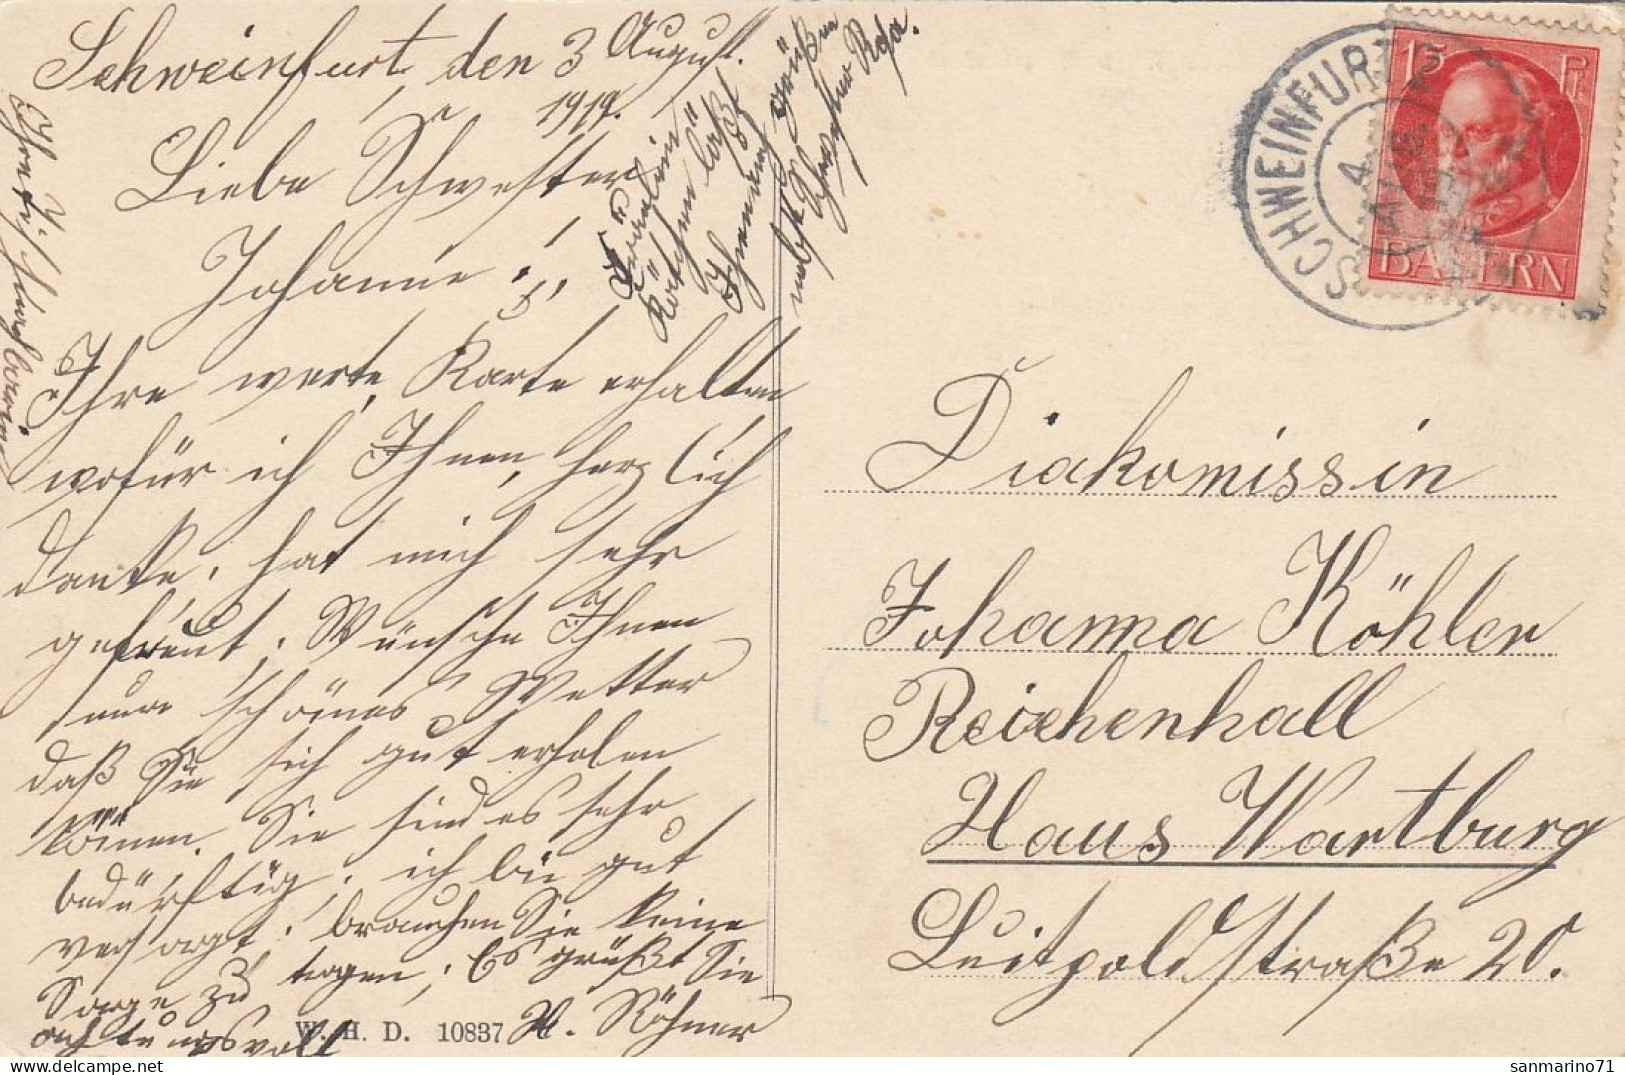 Schweinfurt, den 3 August.
1919.
Liebe Schwester
Johanna!
Ihre werte Karte erhalten
wofür ich Ihnen, herzlich
danke, hat mich sehr
gefreut; Wünsche Ihnen
nur schönes Wetter
daß Sie sich gut erholen
können. Sie sind es sehr
bedürftig; ich bin gut
versorgt; brauchen Sie keine
Sorge zu tragen; Es grüßt Sie
achtungsvoll
Fräulein
läßt
Ihnen
grüßen
nebst Schwester
W. H. D. 10837
SCHWEINFURT 2
4 AUG
15 Pf
BAYERN
Diakonissin
Johanna Köhler
Reichenhall
Haus Wartburg
Luitpoldstraße 20.
sanmarino71